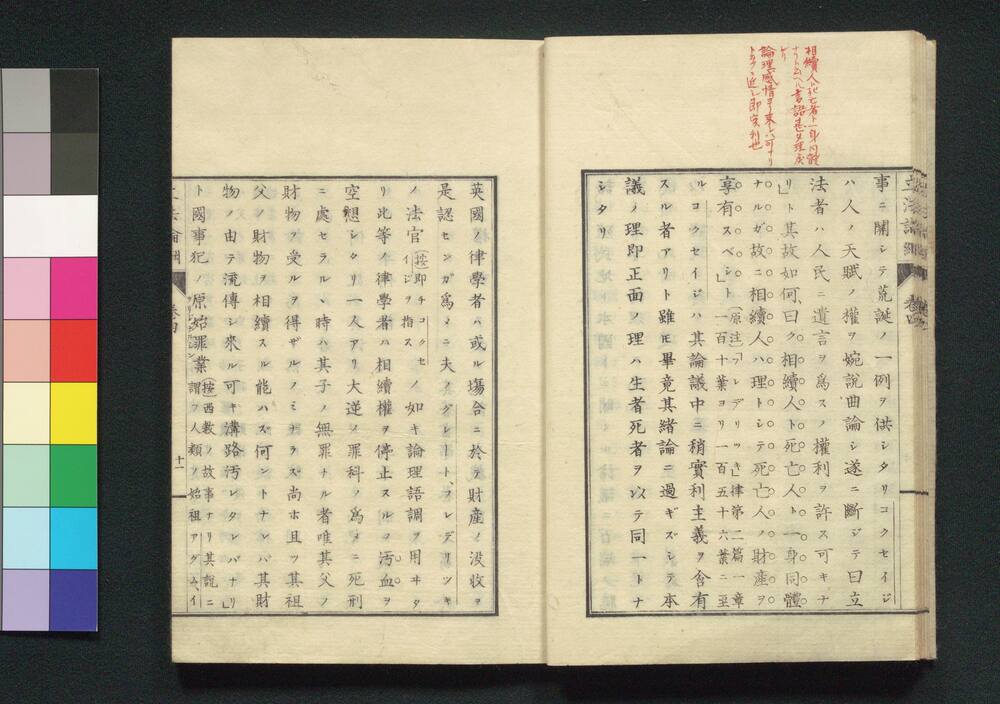 相續人ハ死亡者ト一身同體
論理感情ヲ
事ニ關シテ荒誕ノ一例ヲ供シタリコクセイジ
ハ人ノ天賦ノ權ヲ婉說曲論シ遂ニ斷ジテ曰立
法者ハ人民ニ遺言ヲ爲スノ權利ヲ許ス可キナ
リ」ト其故如何、曰ク相續人ト死亡人ト一身同體
ナルガ故ニ相續人ハ理トシテ死亡人ノ財產ヲ
享有スベシ」ト〔原注〕「フレデリッキ」律第二篇一章
一百十葉ヨリ一百五十六葉ニ至
ルコクセイジハ其論議中ニ稍實利主義ヲ含有
スル者アリト雖𪜈畢竟其緒論ニ過ギズシテ本
議ノ理卽正面ノ理ハ生者死者ヲ以テ同一トナ
シタリ
英國ノ律學者ハ或ル塲合ニ於テ財產ノ沒收ヲ
是認センガ爲メニ夫ノグレートフレデリツキ
ノ法官〔按〕卽チコクセ
イジヲ指スノ如キ論理語調ヲ用ヰタ
リ此等ノ律學者ハ相續權ヲ停止スルヲ汚血ヲ
空想シタリ一人アリ大逆ノ罪科ノ爲メニ死刑
ニ處セラルヽ時ハ其子ノ無罪ナル者唯其父ノ
財物ヲ受ルヲ得ザルノミナラズ尚ホ且ツ其祖
父ノ財物ヲ相續スル能ハズ何ントナレバ其財
物ノ由テ流傳シ來ル可キ溝路汚レタレバナリ」
ト國事犯ノ原始罪業〔按〕西敎ノ故事ナリ其說ニ
謂フ人類ノ始祖アダム、イ
卷四
十一